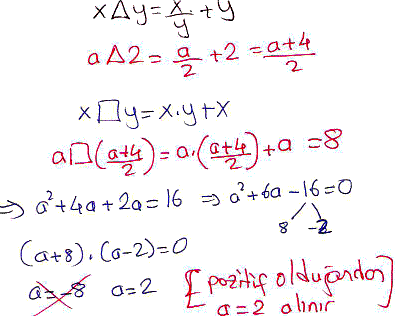 x△y = x/y + y
a△2 = a/2 + 2 = a+4/2
x□y = x.y + x
a□(a+4/2) = a.(a+4/2) + a = 8
⇒ a²+4a+2a=16 ⇒ a²+6a-16=0
8 -2
(a+8).(a-2)=0
a=-8 a=2 [pozitif olduğundan]
a=2 alınır